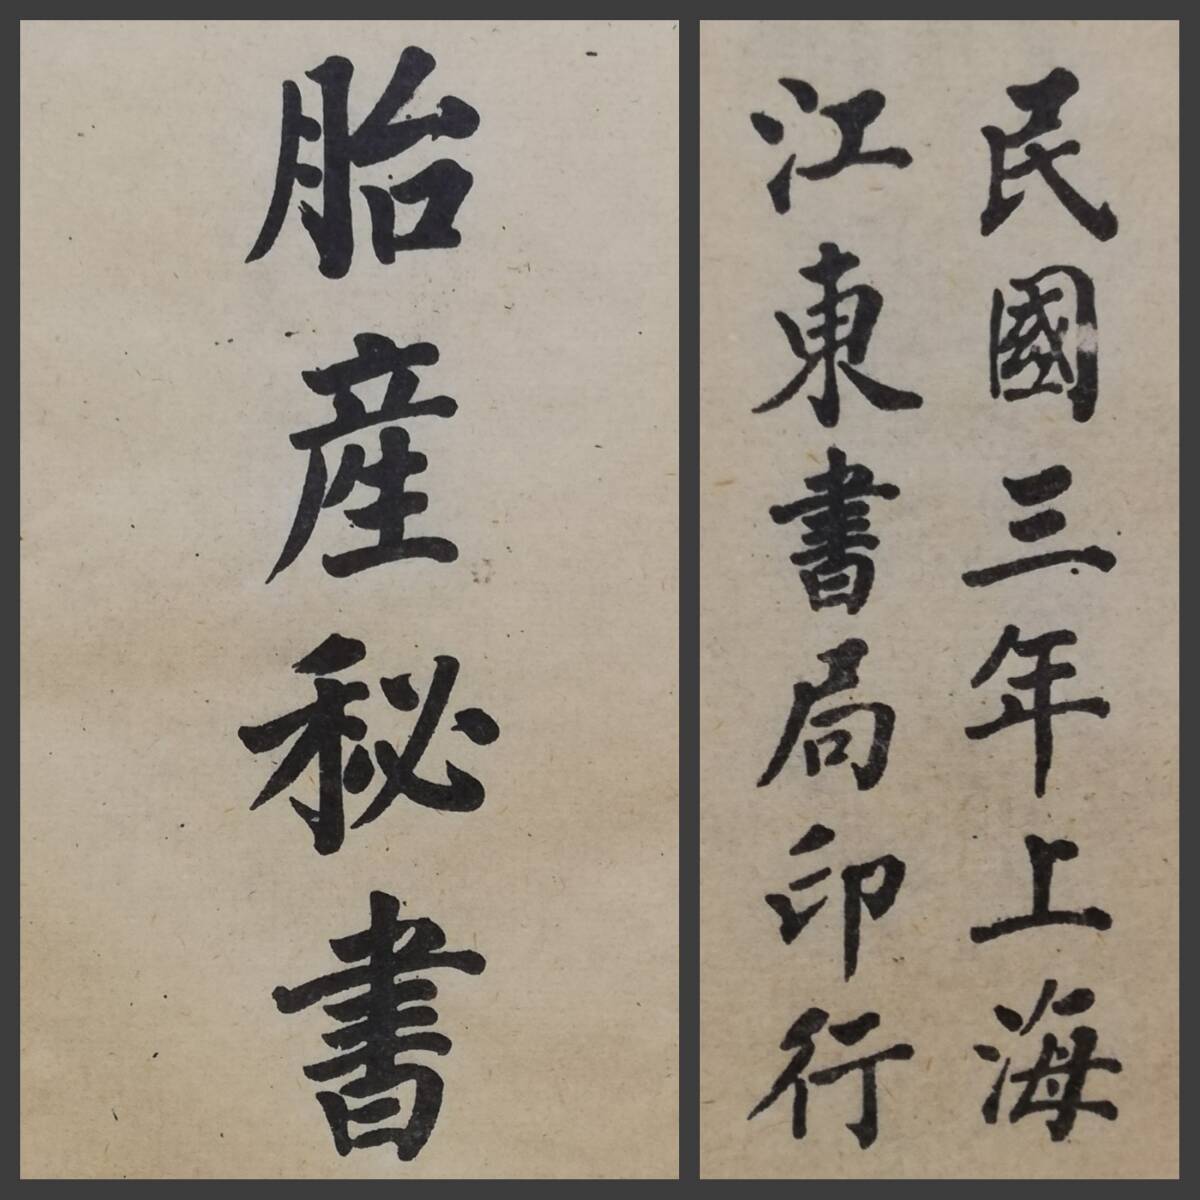 胎產秘書
民國三年上海
江東書局印行